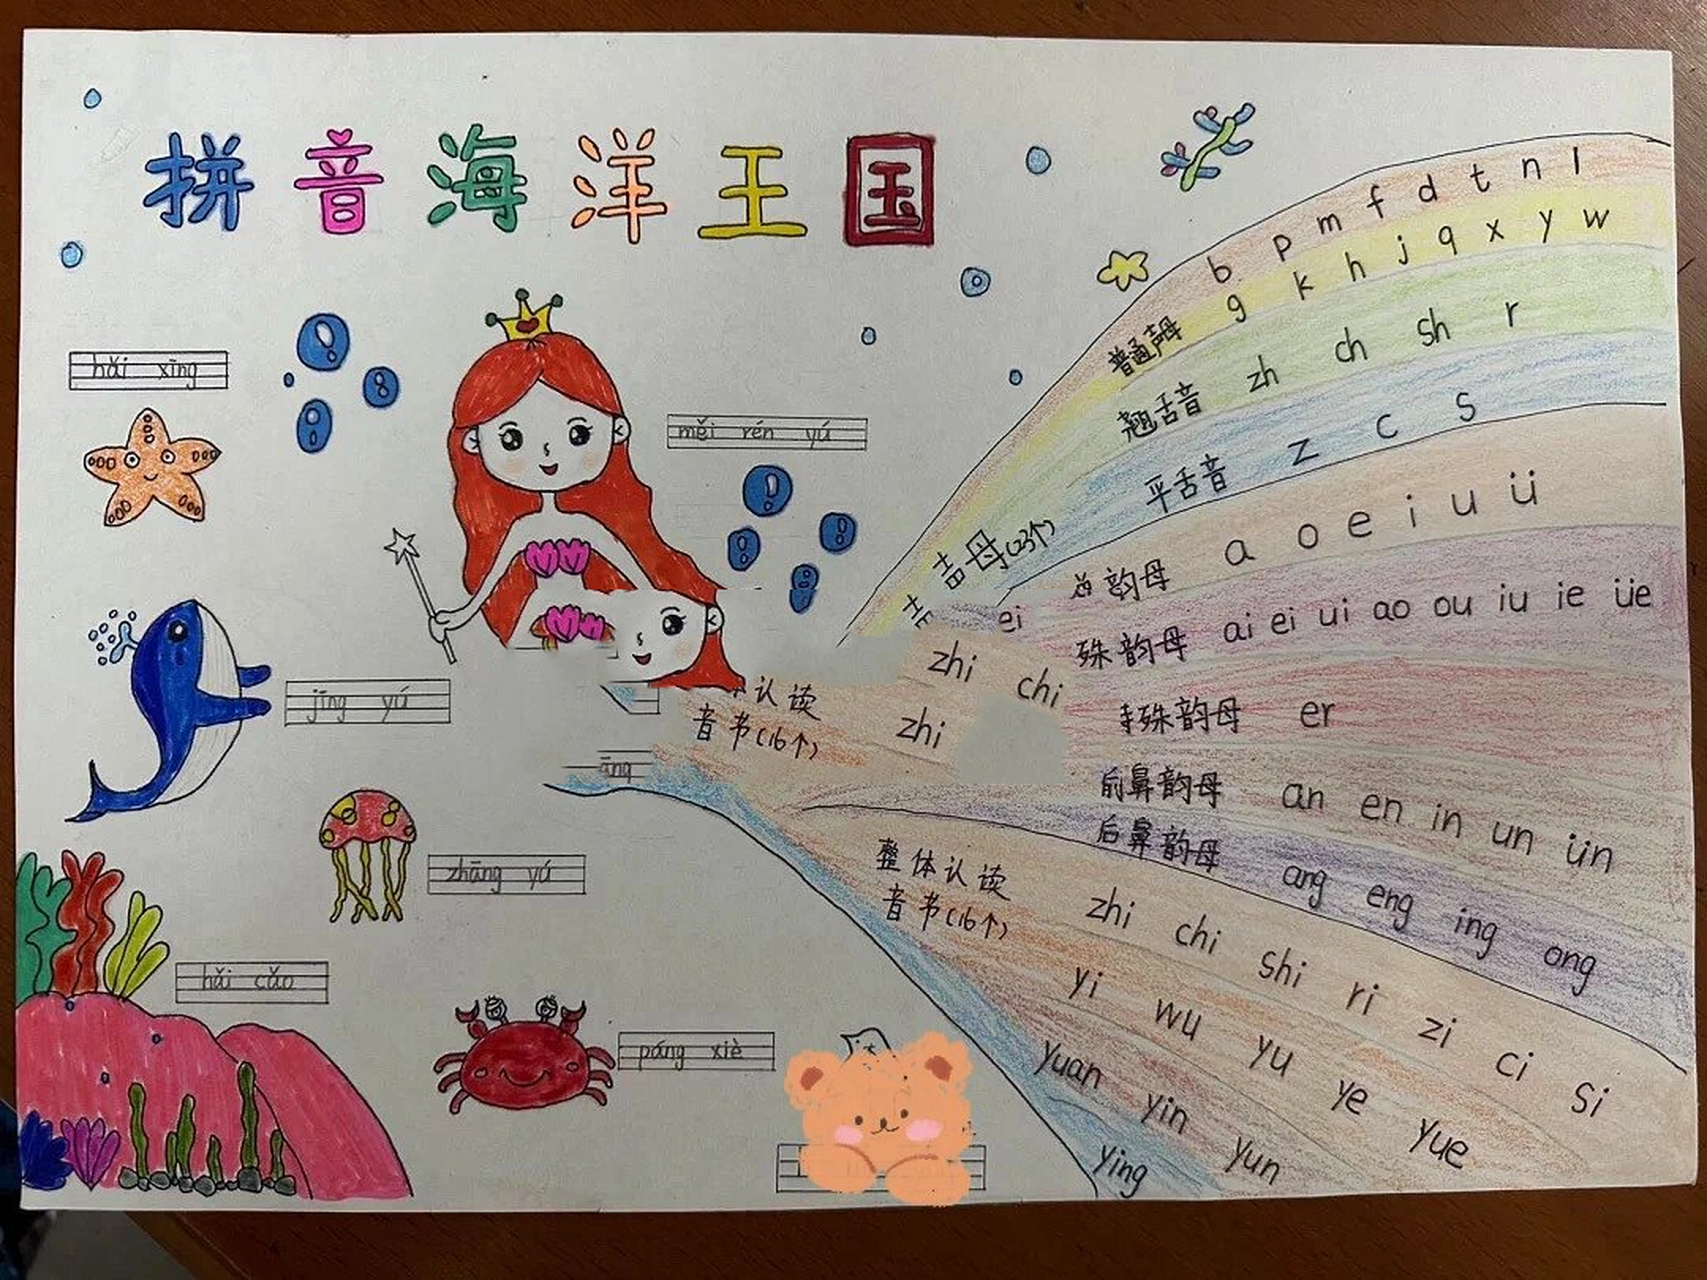 拼音海洋王国
hǎi xīng
měi rén yú
jīng yú
zhāng yú
hǎi cǎo
páng xiè
āng
b p m f d t n l
普通声母 g k h j q x y w
翘舌音 zh ch sh r
平舌音 z c s
母(23个)
韵母 a o e i u ü
ei
殊韵母 ai ei ui ao ou iu ie üe
殊韵母 er
前鼻韵母 an en in un ün
后鼻韵母 ang eng ing ong
zhi chi
认读
音书(16个) zhi
整体认读
音书(16个)
zhi chi shi ri zi ci si
yi wu yu ye yue
yuan yin yun
ying